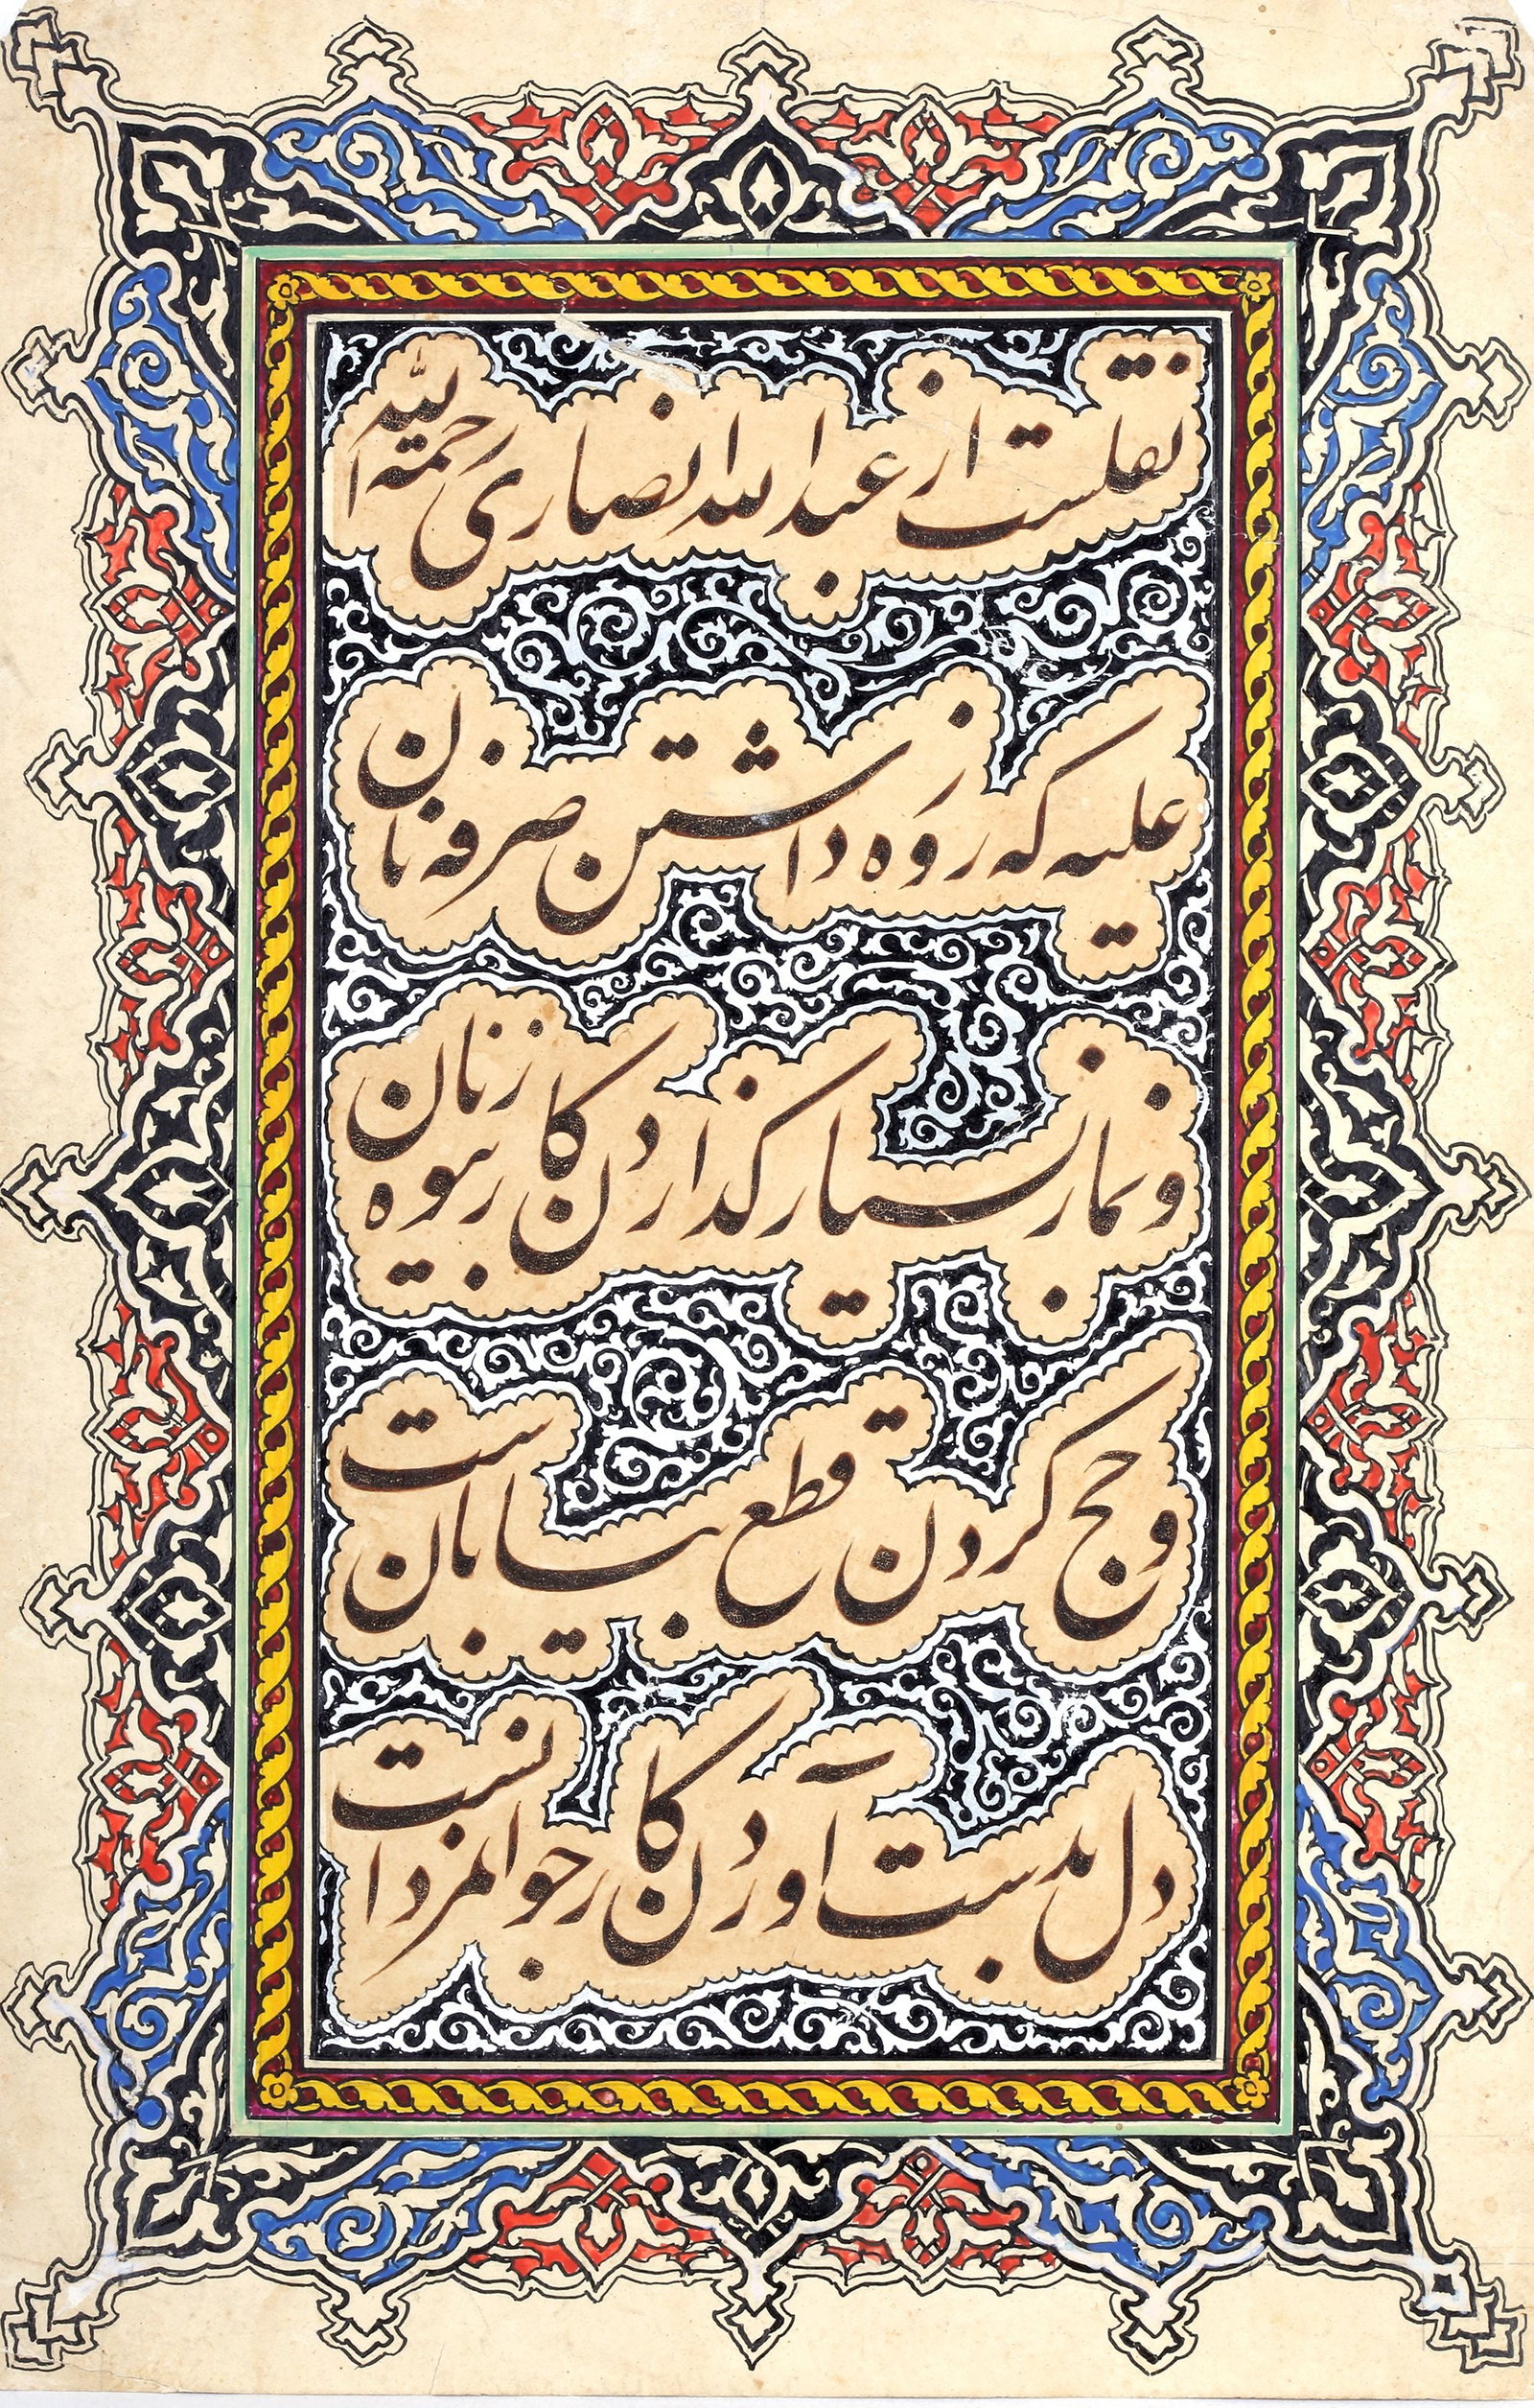 نقلست از عبدالله انصاری رحمة الله
علیه که روزه داشتن صرفه نان
و نماز بسیار گذاردن کار بیوه زنان
و حج کردن قطع بیابان است
دل بدست آوردن کار جوانمردانست